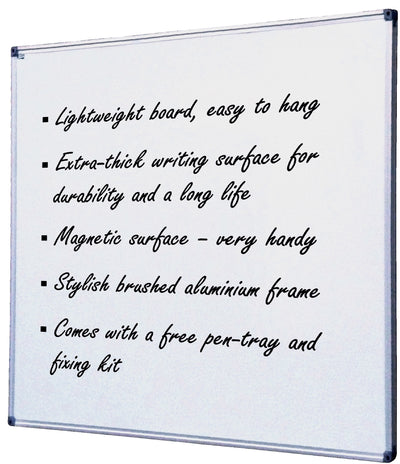 ▪ Lightweight board, easy to hang
▪ Extra-thick writing surface for
durability and a long life
▪ Magnetic surface – very handy
▪ Stylish brushed aluminium frame
▪ Comes with a free pen-tray and
fixing kit